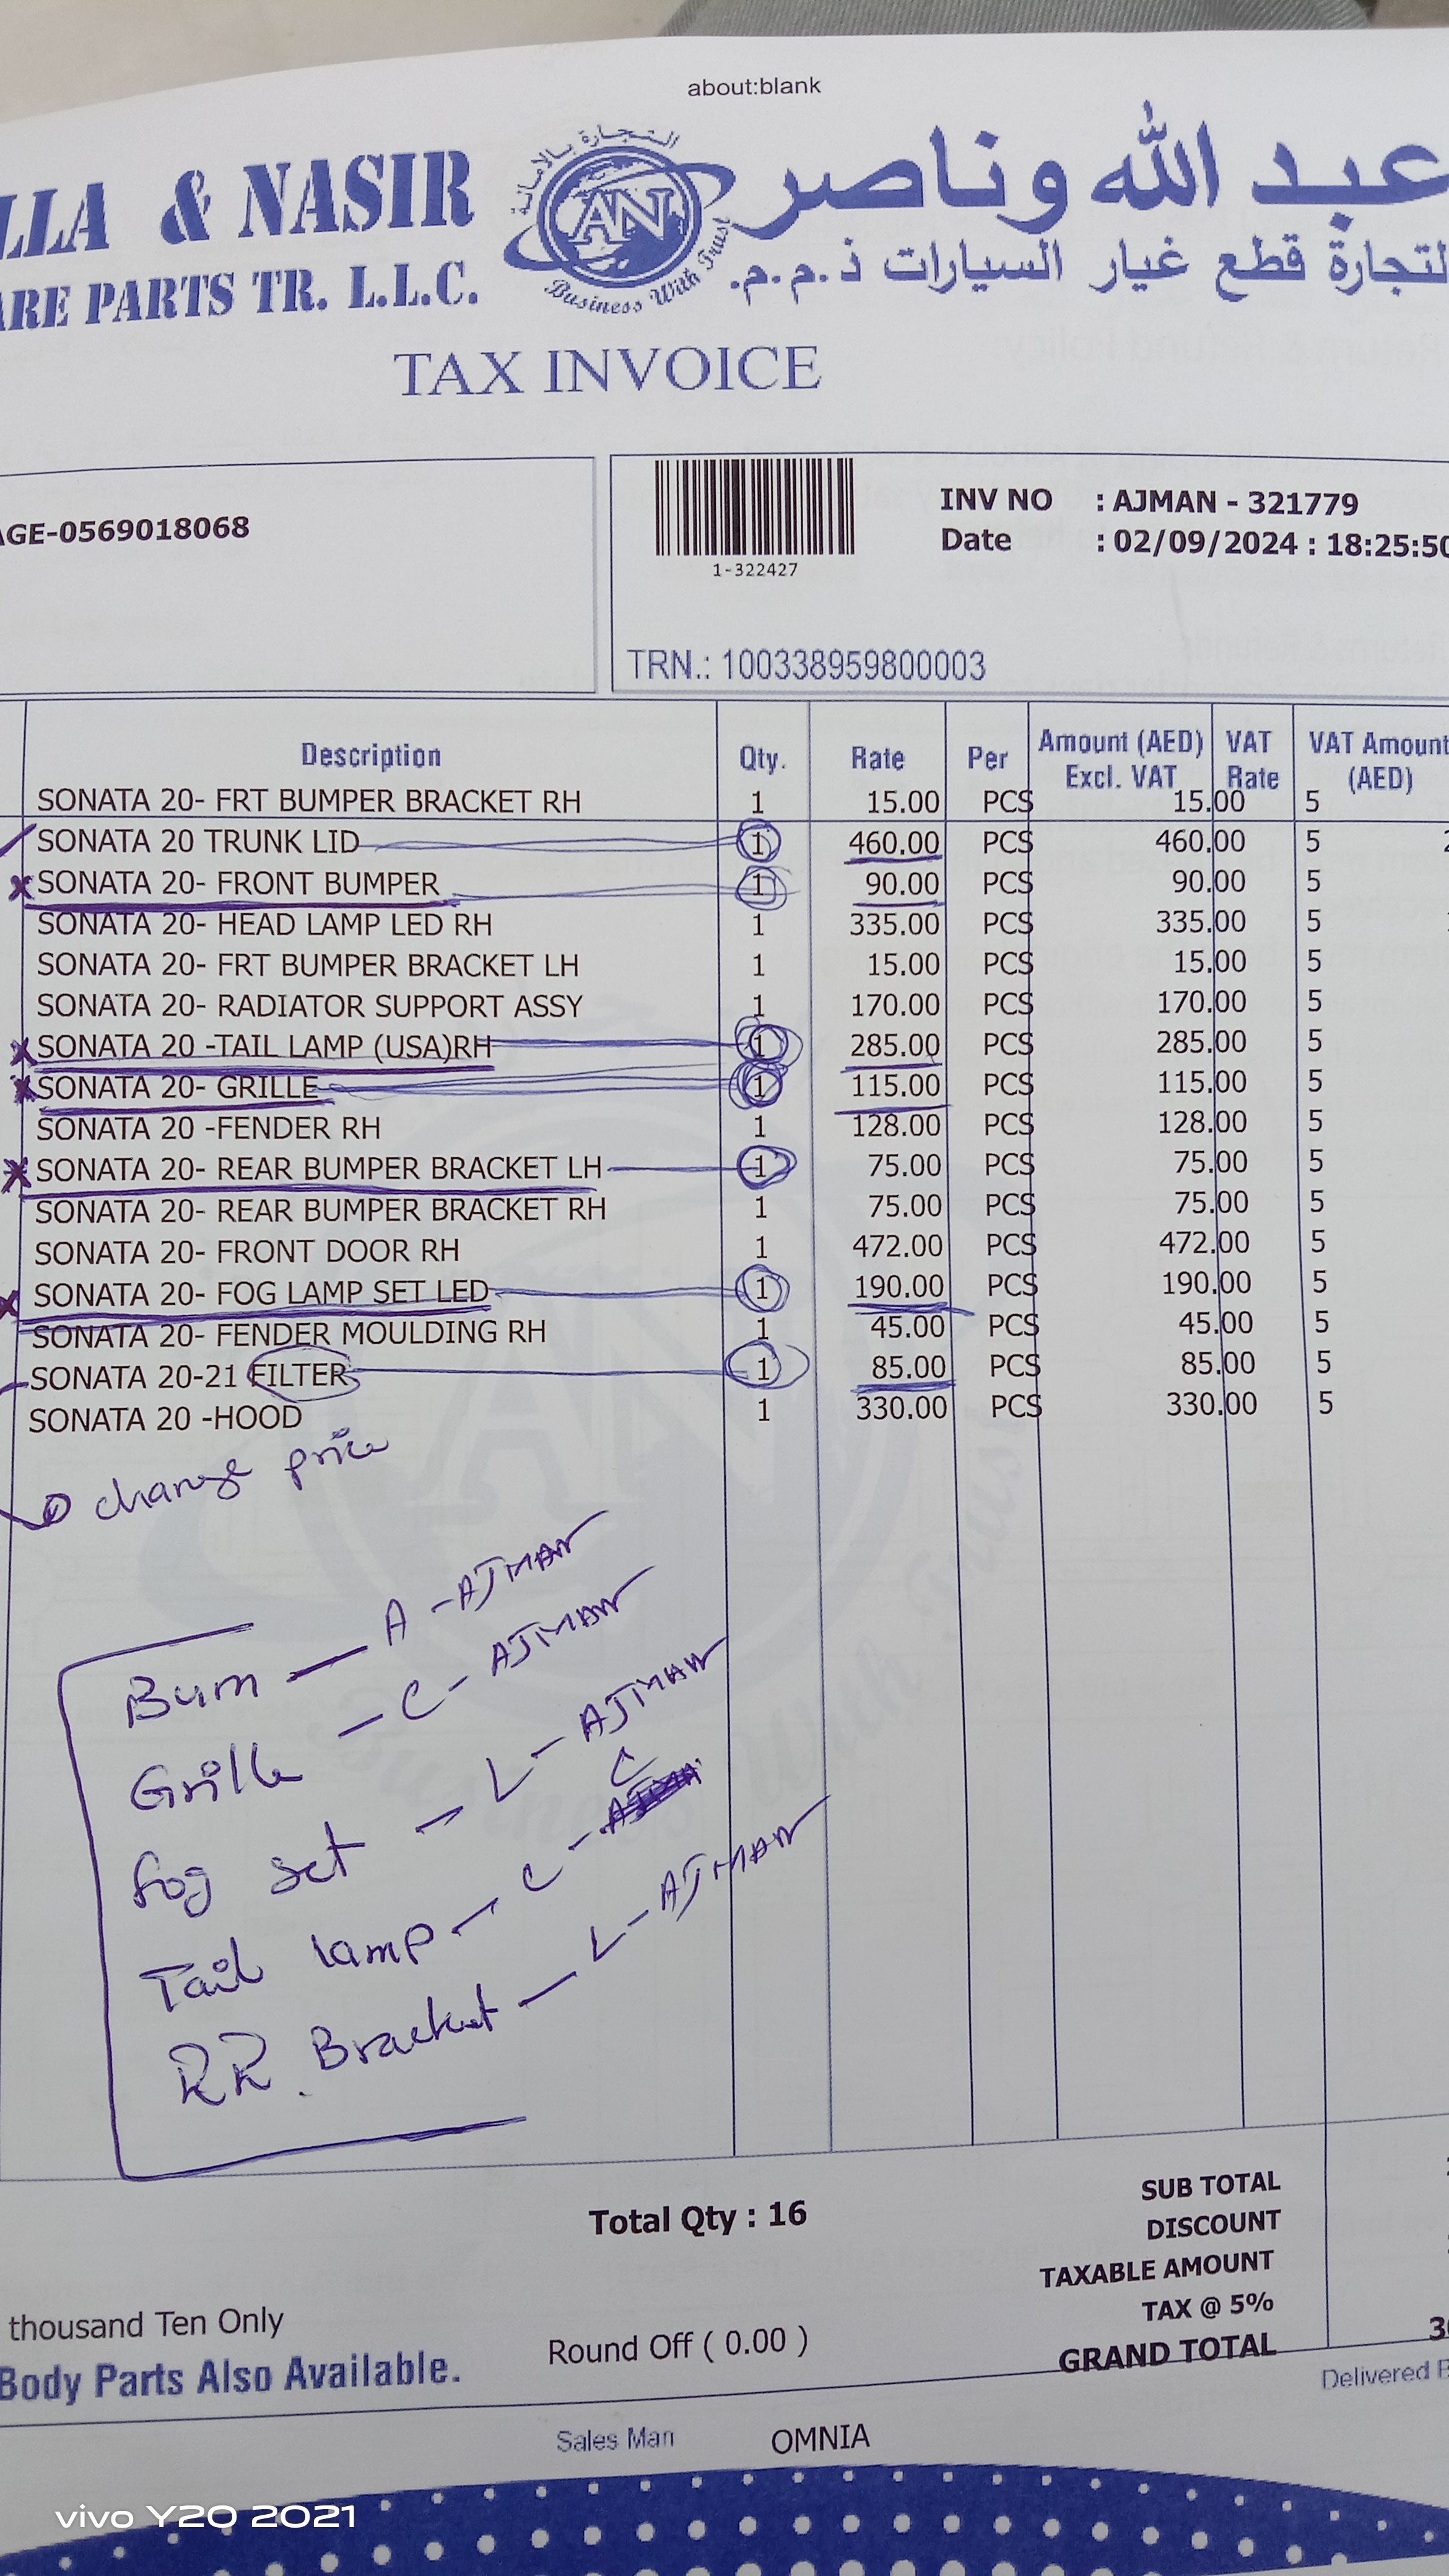 about:blank
LLA & NASIR
عبد الله وناصر
ARE PARTS TR. L.L.C.
لتجارة قطع غيار السيارات ذ.م.م.
التجارة بالامانة
AN
Business With Trust
TAX INVOICE
AGE-0569018068
1-322427
INV NO : AJMAN - 321779
Date : 02/09/2024 : 18:25:50
TRN.: 100338959800003
Description Qty. Rate Per Amount (AED) Excl. VAT VAT Rate VAT Amount (AED)
SONATA 20- FRT BUMPER BRACKET RH 1 15.00 PCS 15.00 5
SONATA 20 TRUNK LID 1 460.00 PCS 460.00 5
SONATA 20- FRONT BUMPER 1 90.00 PCS 90.00 5
SONATA 20- HEAD LAMP LED RH 1 335.00 PCS 335.00 5
SONATA 20- FRT BUMPER BRACKET LH 1 15.00 PCS 15.00 5
SONATA 20- RADIATOR SUPPORT ASSY 1 170.00 PCS 170.00 5
SONATA 20 -TAIL LAMP (USA)RH 1 285.00 PCS 285.00 5
SONATA 20- GRILLE 1 115.00 PCS 115.00 5
SONATA 20 -FENDER RH 1 128.00 PCS 128.00 5
SONATA 20- REAR BUMPER BRACKET LH 1 75.00 PCS 75.00 5
SONATA 20- REAR BUMPER BRACKET RH 1 75.00 PCS 75.00 5
SONATA 20- FRONT DOOR RH 1 472.00 PCS 472.00 5
SONATA 20- FOG LAMP SET LED 1 190.00 PCS 190.00 5
SONATA 20- FENDER MOULDING RH 1 45.00 PCS 45.00 5
SONATA 20-21 FILTER 1 85.00 PCS 85.00 5
SONATA 20 -HOOD 1 330.00 PCS 330.00 5
change price
Bum — A - AJMAN
Grille — C - AJMAN
fog set — L - AJMAN
Tail lamp — C - C
RR. Bracket — L - AJMAN
Total Qty : 16
SUB TOTAL
DISCOUNT
TAXABLE AMOUNT
TAX @ 5%
thousand Ten Only
Round Off ( 0.00 )
GRAND TOTAL 30
Body Parts Also Available.
Delivered B
Sales Man OMNIA
vivo Y20 2021